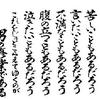 苦しいこともあるだろう
言いたいこともあるだろう
不満なこともあるだろう
腹の立つこともあるだろう
泣きたいこともあるだろう
これらをじっとこらえてゆくのが
男の修行である